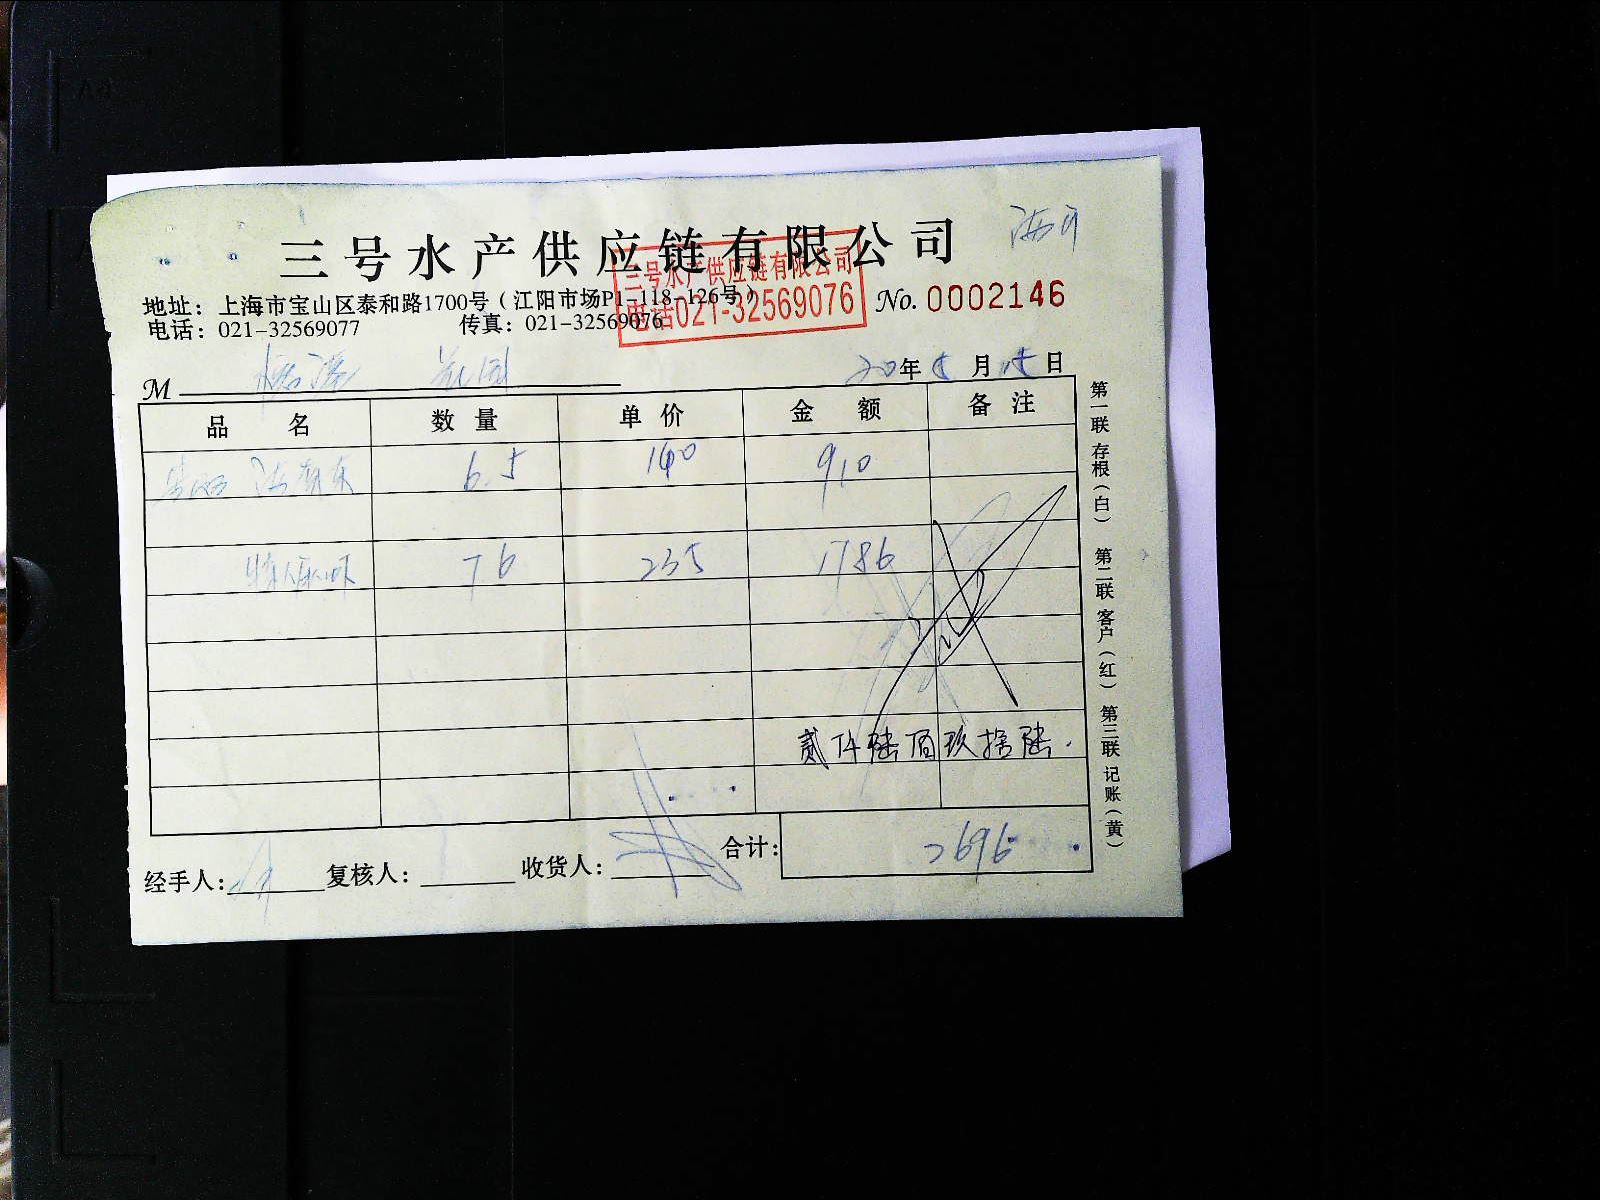 三号水产供应链有限公司
三号水产供应链有限公司
电话021-32569076
地址：上海市宝山区泰和路1700号（江阳市场P1-118-126号）
No. 0002146
电话：021-32569077 传真：021-32569076
M
20年 月 日
品名 数量 单价 金额 备注
6.5 140 910
76 235 1786
贰仟陆百玖拾陆.
经手人： 复核人： 收货人： 合计： 2696
第一联 存根（白） 第二联 客户（红） 第三联 记账（黄）